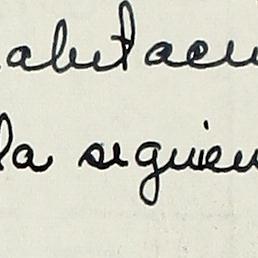 abitaci
la siguien